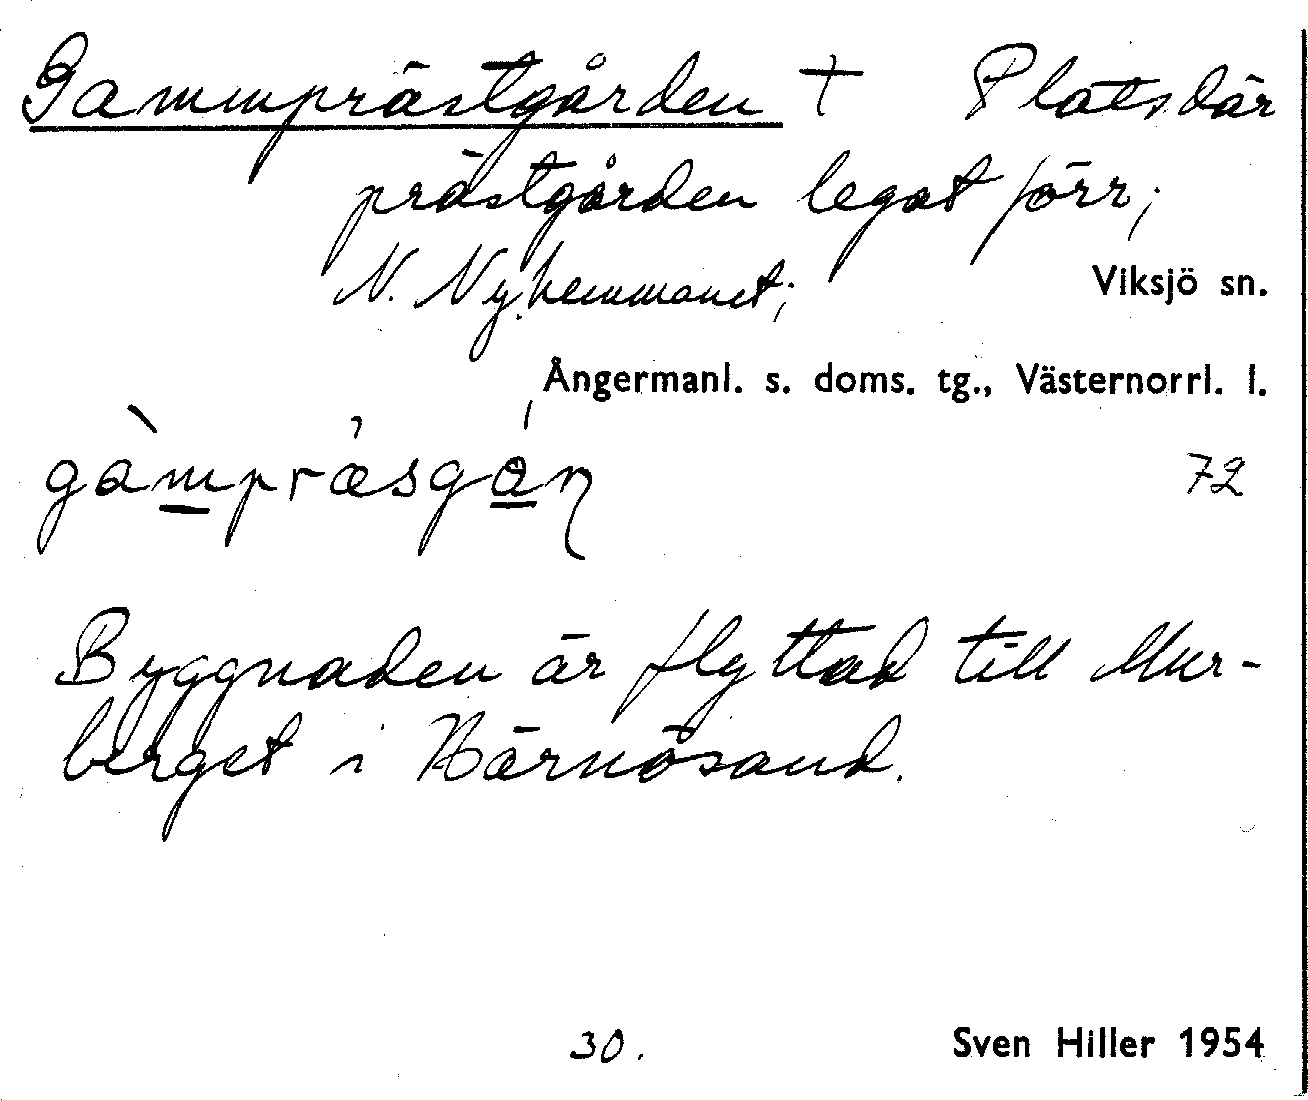 Gammprästgården † Plats där
prästgården legat förr;
N. Nyhemmanet; Viksjö sn.
Ångermanl. s. doms. tg., Västernorrl. l.
72
Byggnaden är flyttad till Mur-
berget i Härnösand.
30. Sven Hiller 1954